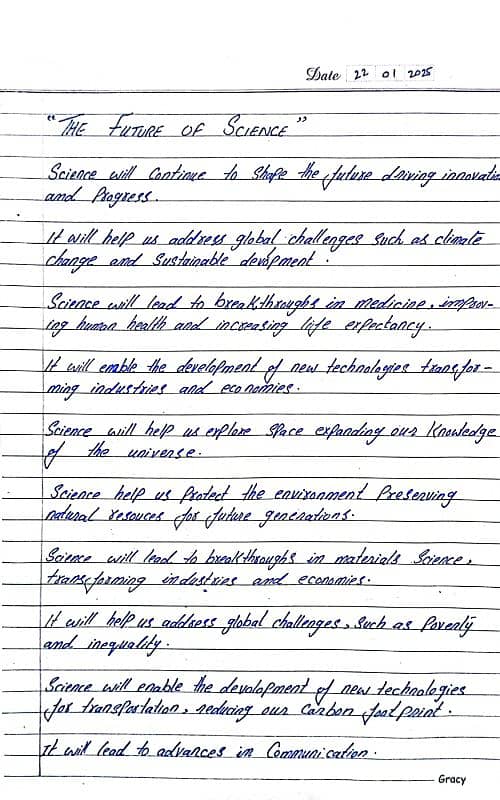 Date 22 01 2025
"THE FUTURE OF SCIENCE"
Science will Continue to Shape the future driving innovatio
and Progress.
It will help us address global challenges Such as climate
change and Sustainable devlopment.
Science will lead to breakthroughs in medicine, improv-
ing human health and increasing life expectancy.
It will enable the development of new technologies transfor-
ming industries and economies.
Science will help us explore Space expanding our Knowledge
of the universe.
Science help us Protect the environment Preserving
natural resouces for future generations.
Science will lead to breakthroughs in materials Science,
transforming industries and economies.
It will help us address global challenges, Such as Poverty
and inequality.
Science will enable the devalopment of new technologies
for transportation, reducing our Carbon foot print.
It will lead to advances in Communication.
Gracy